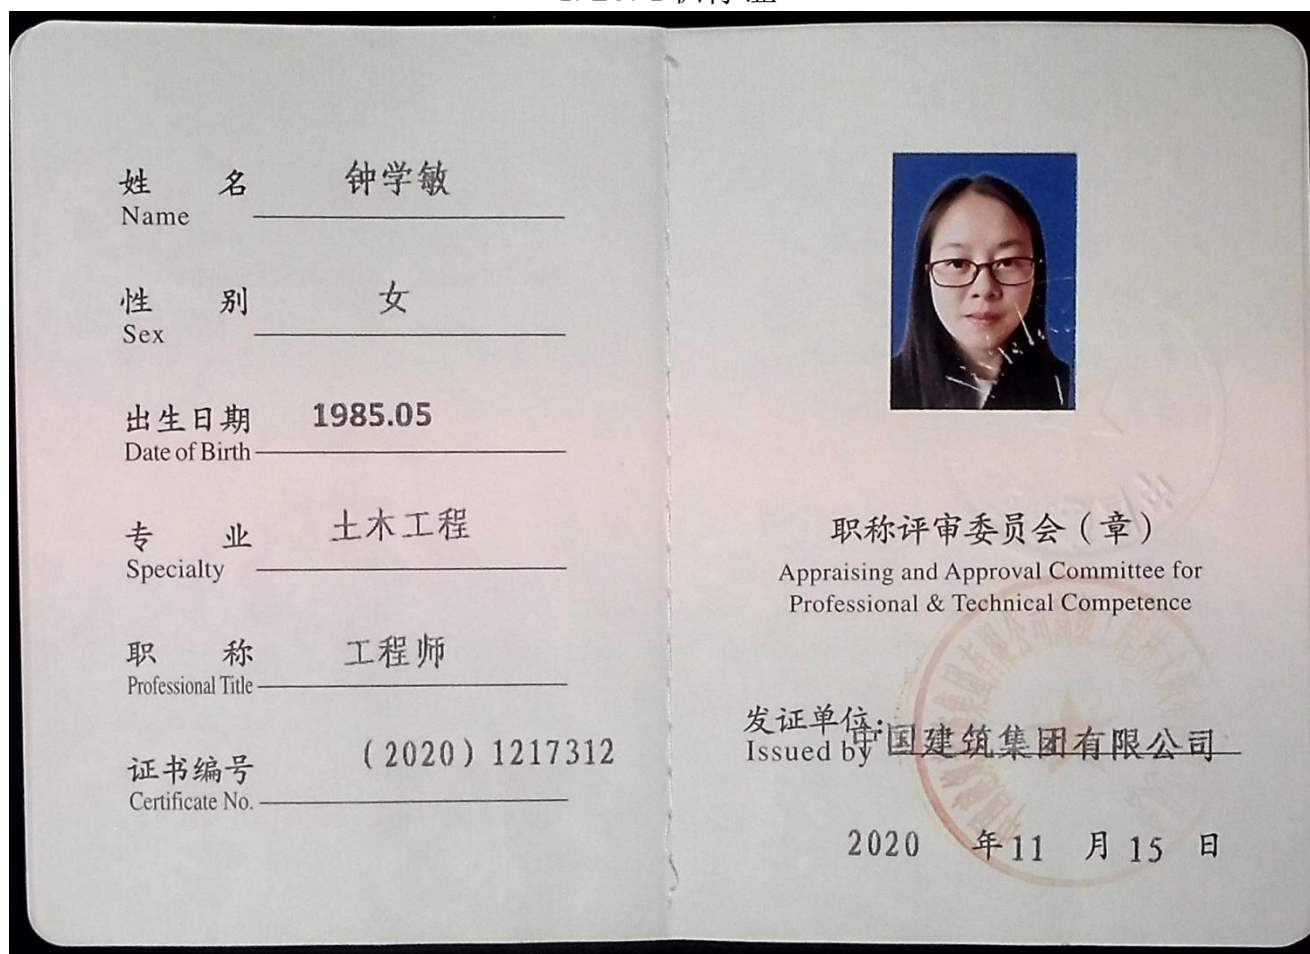 姓 名 钟学敏
Name
性 别 女
Sex
出生日期 1985.05
Date of Birth
专 业 土木工程
Specialty
职 称 工程师
Professional Title
证书编号 (2020) 1217312
Certificate No.
职称评审委员会（章）
Appraising and Approval Committee for
Professional & Technical Competence
发证单位:
Issued by 中国建筑集团有限公司
2020 年 11 月 15 日